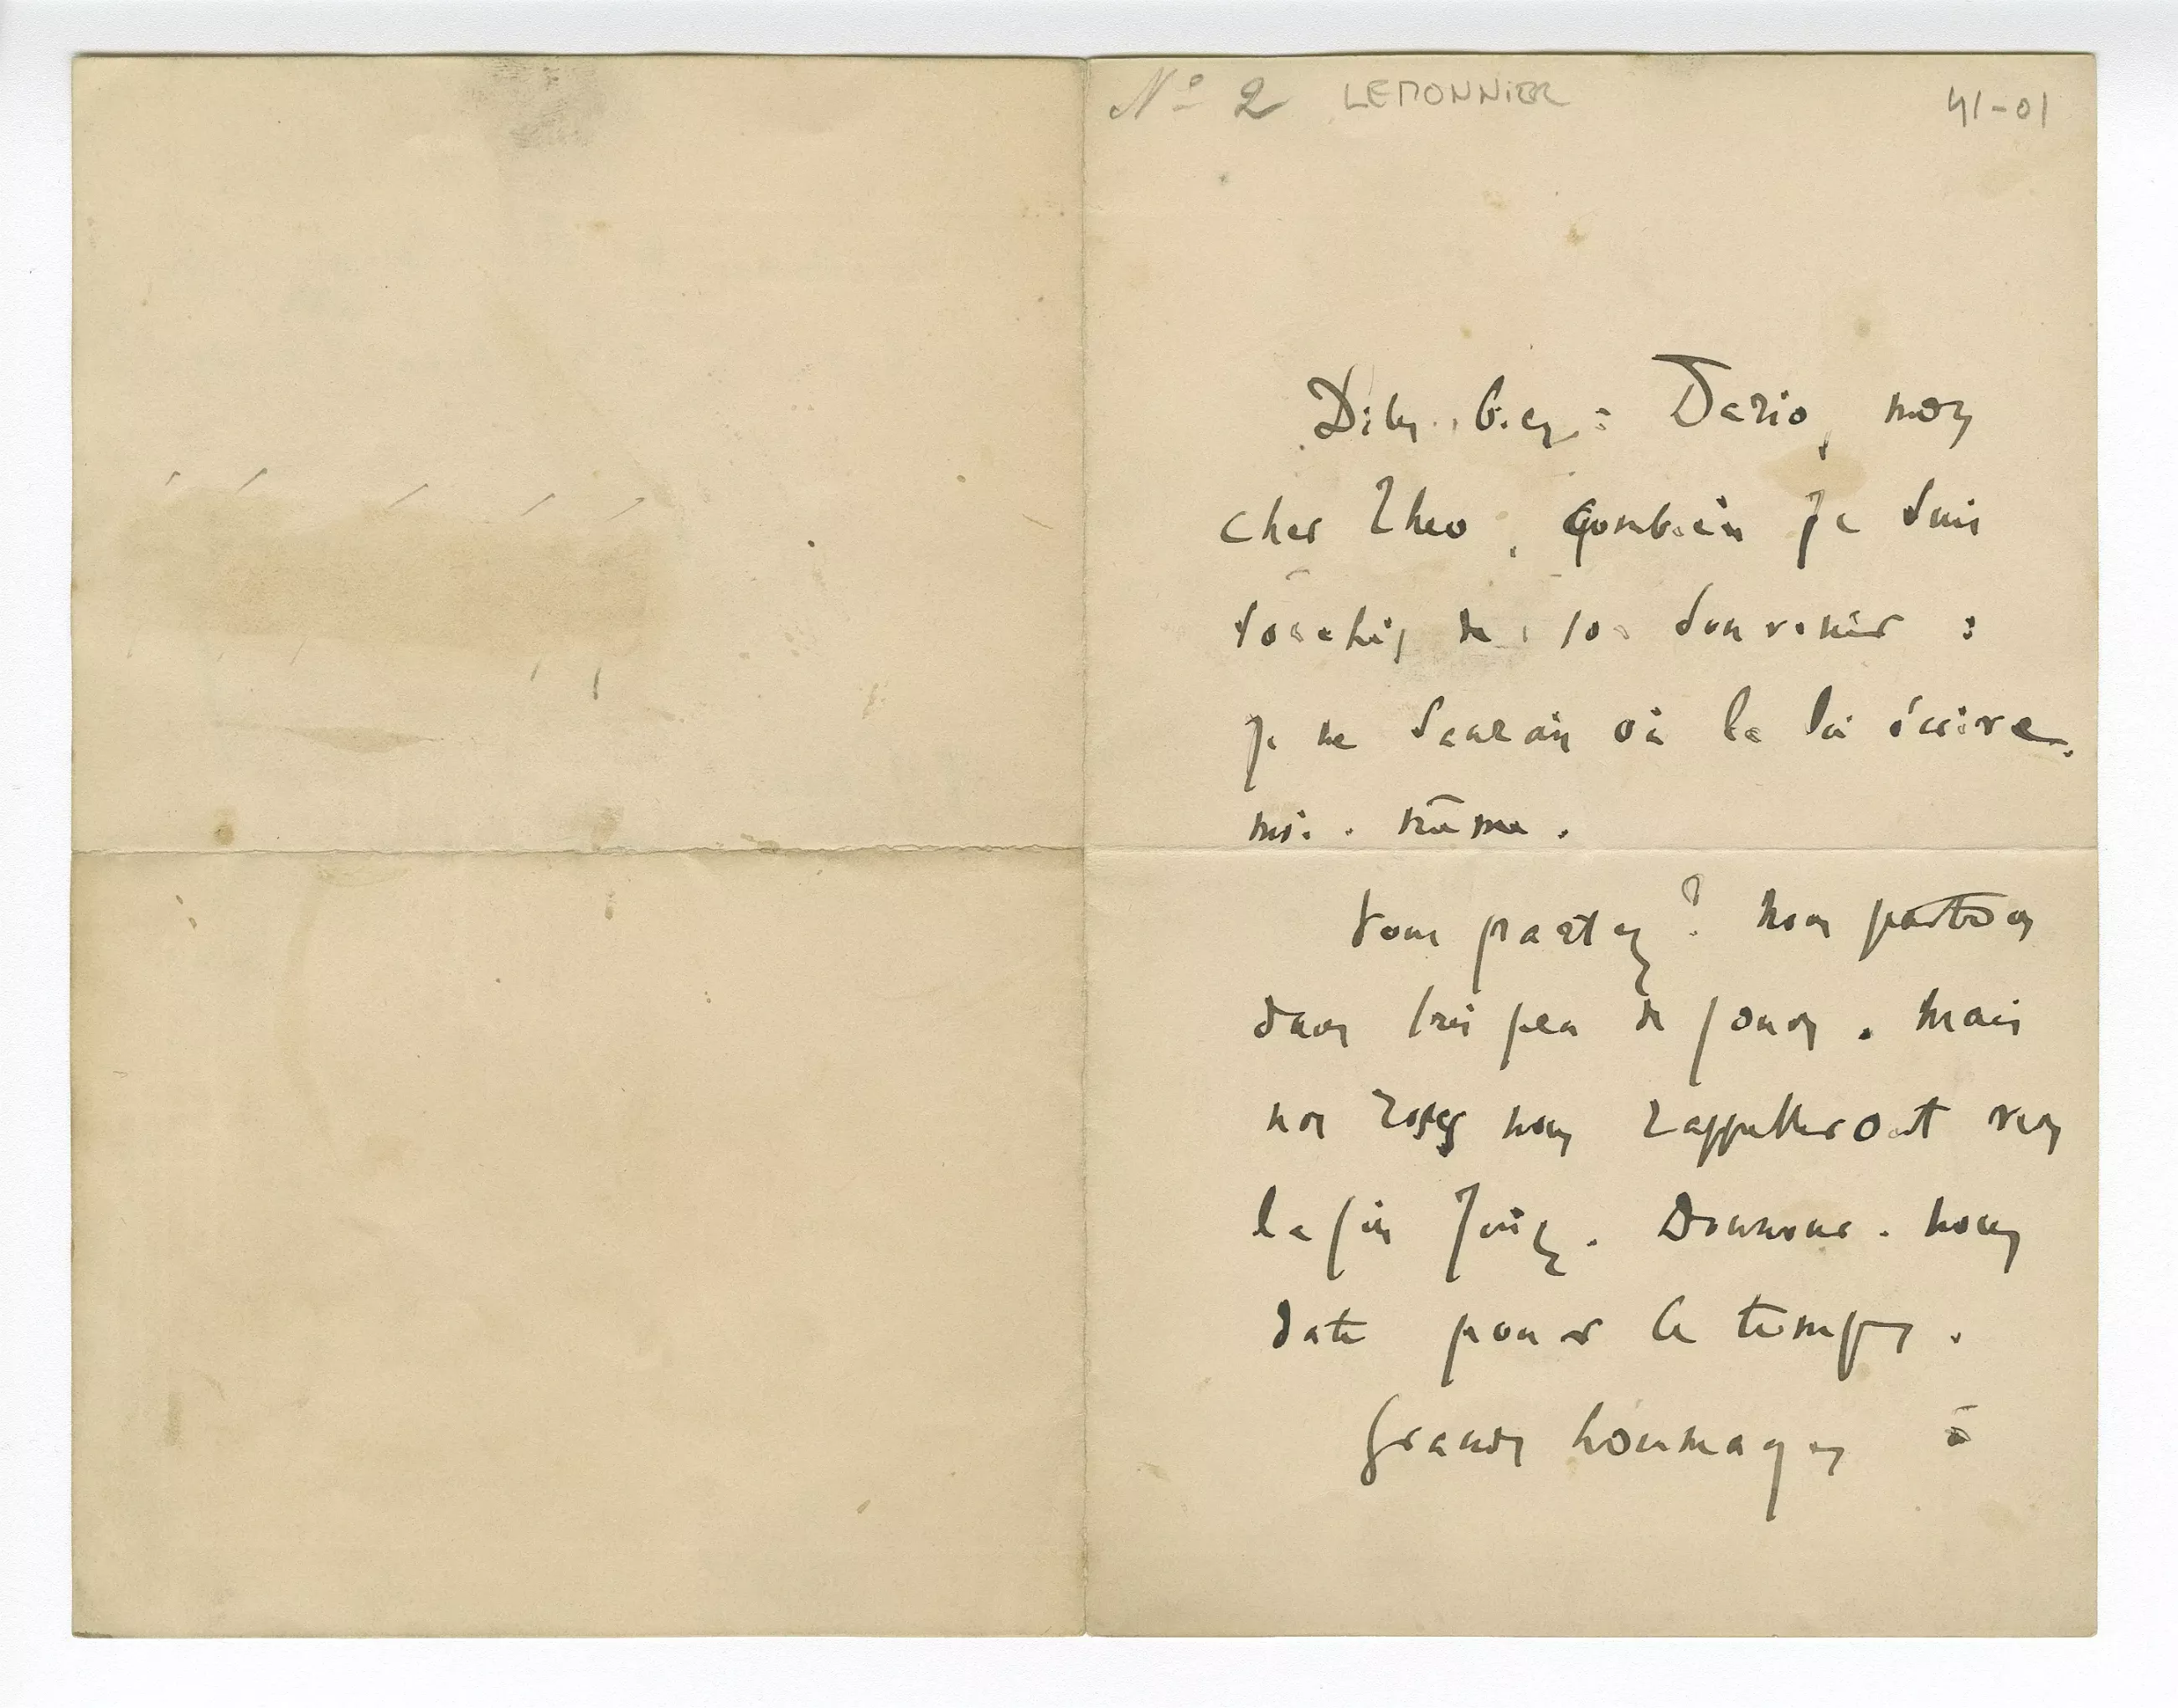 Nº 2 LEMONNIER 41-01
Dites bien à Dario, mon
cher Théo, combien je suis
touché de son souvenir :
je ne saurais où le lui écrire
moi-même.
Vous partez ? Nous partons
dans très peu de jours. Mais
nos roses nous rappelleront vers
la fin Juin. Donnons-nous
date pour ce temps.
Grands hommages à